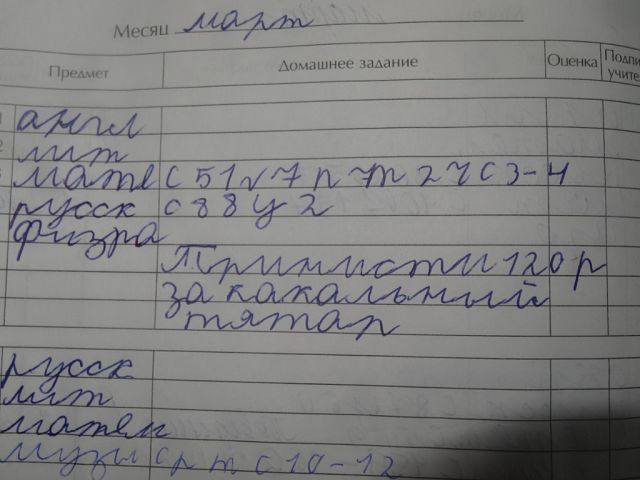 Месяц март
Предмет Домашнее задание Оценка Подпи учите
англ
лит
матем с 51 √ 7 п 7т 2 ч с 3-4
русск с 88 у 2
физра
Тринисти 120 р
за какальный
тятар
русск
лит
матем
музы с р т с 10-12